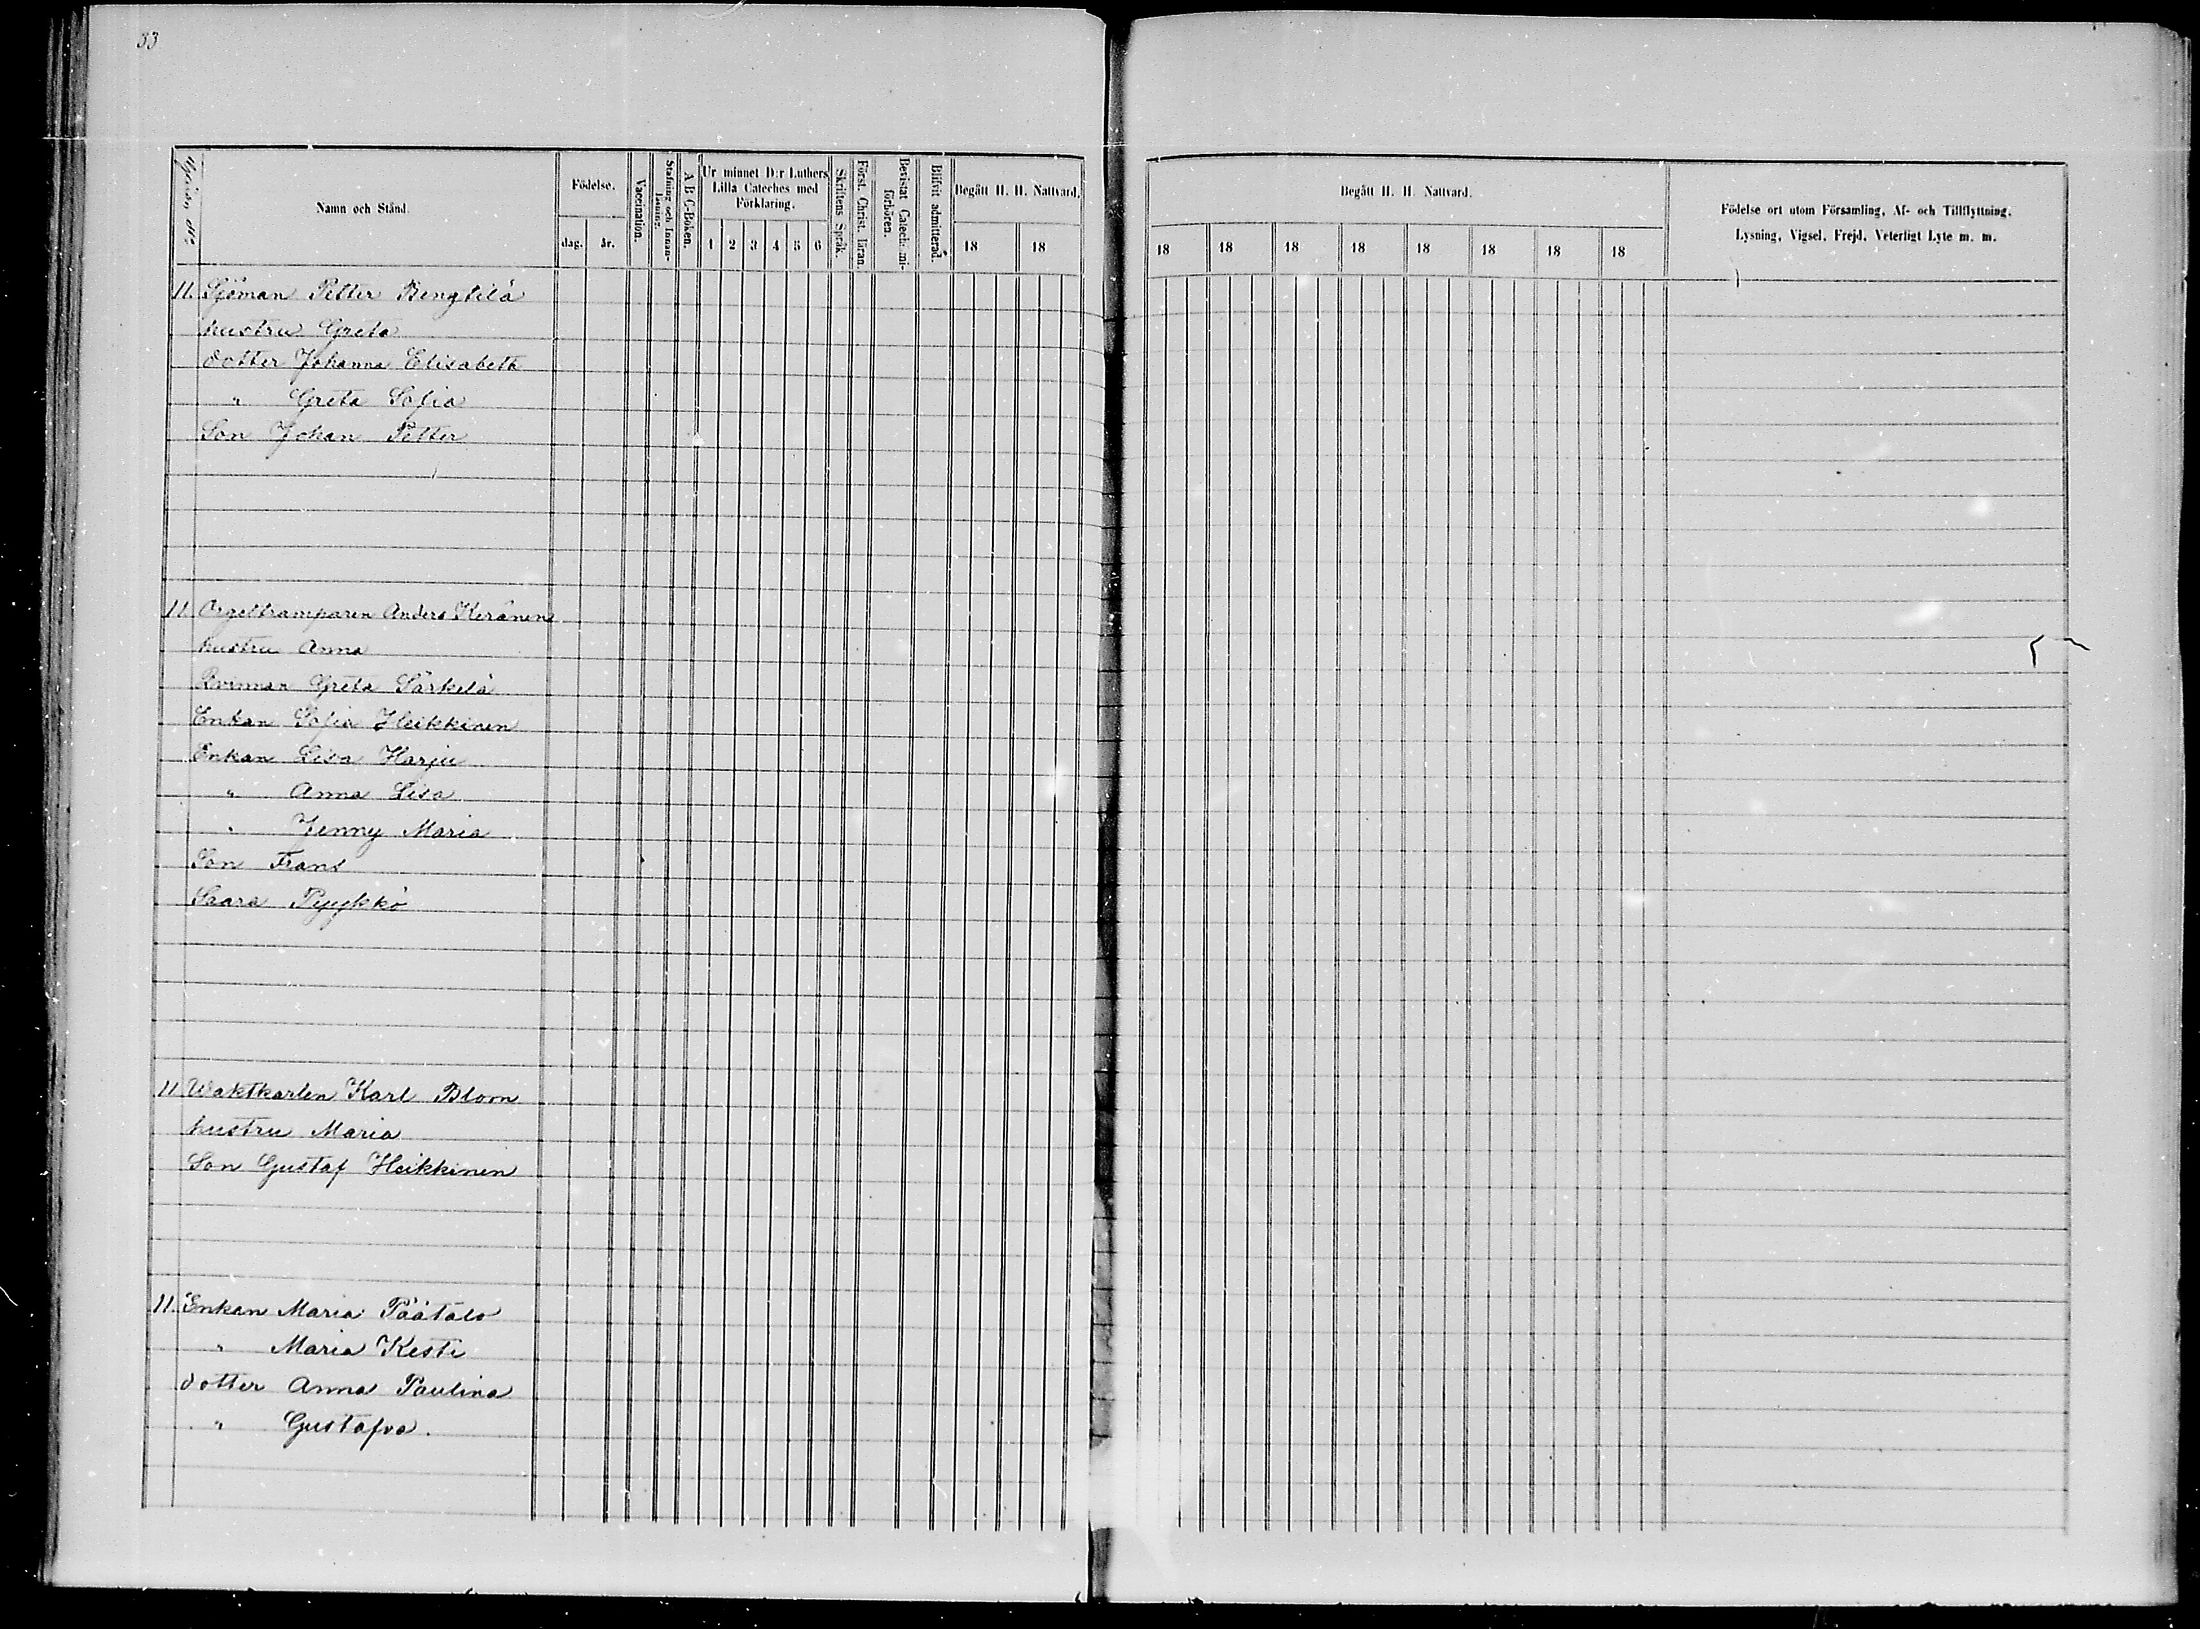 33
Namn och Stånd.
Födelse.
dag.
år.
Vaccination.
Stafning och Innan-
läsning.
A B C-Boken.
Ur minnet D:r Luthers
Lilla Cateches med
Förklaring.
1 2 3 4 5 6
Skriftens Språk.
Först. Christ. läran.
Bevistat Catechismi-
förhören.
Blifvit admitterad.
Begått H. H. Nattvard.
18 18
Begått H. H. Nattvard.
18 18 18 18 18 18 18 18
Födelse ort utom Församling, Af- och Tillflyttning,
Lysning, Vigsel, Frejd, Veterligt Lyte m. m.
11. Sjöman Petter Bengtilä
hustru Greta
dotter Johanna Elisabeth
" Greta Sofia
Son Johan Petter
11. Orgeltramparen Anders Keränen
hustru Anna
Qvinnan Greta Särkelä
Enkan Sofia Heikkinen
Enkan Lisa Harju
" Anna Lisa
" Jenny Maria
Son Frans
Saara Pyykkö
11. Waktkarlen Karl Blom
hustru Maria
Son Gustaf Heikkinen
11. Enkan Maria Päätalo
" Maria Kesti
dotter Anna Paulina
" Gustafva.